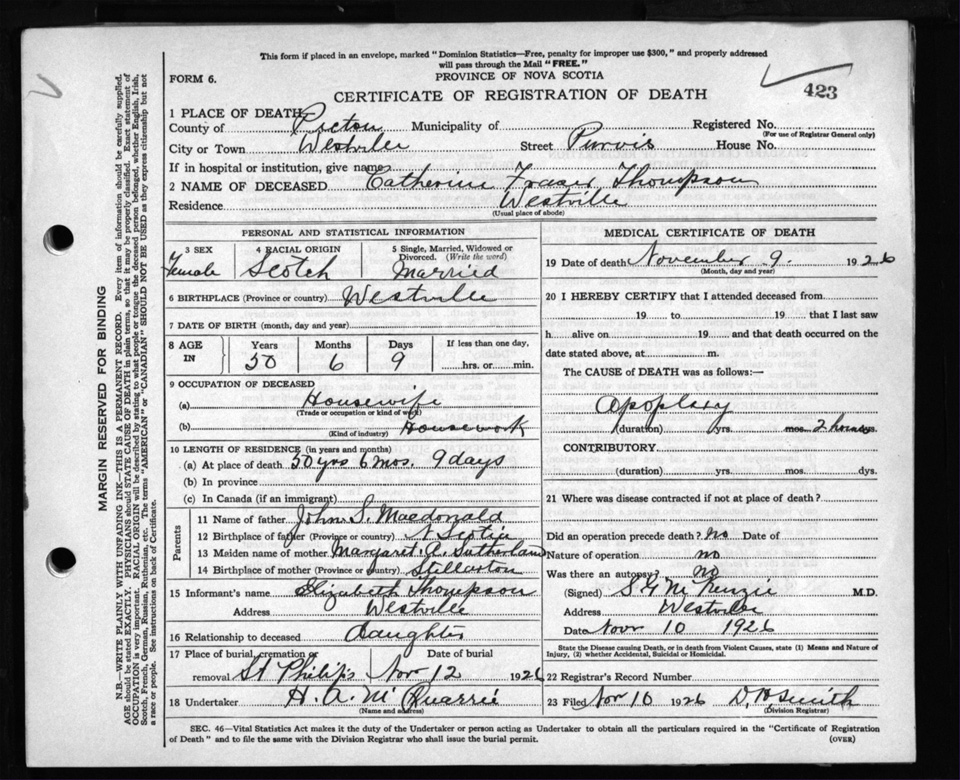 This form if placed in an envelope, marked "Dominion Statistics—Free, penalty for improper use $300," and properly addressed
will pass through the Mail "FREE."
FORM 6.
PROVINCE OF NOVA SCOTIA
CERTIFICATE OF REGISTRATION OF DEATH
423
1 PLACE OF DEATH
County of Pictou Municipality of Registered No.
(For use of Registrar General only)
City or Town Westville Street Purvis House No.
If in hospital or institution, give name
2 NAME OF DECEASED Catherine Fraser Thompson
Residence Westville
(Usual place of abode)
PERSONAL AND STATISTICAL INFORMATION
3 SEX 4 RACIAL ORIGIN 5 Single, Married, Widowed or
Divorced. (Write the word)
Female Scotch Married
6 BIRTHPLACE (Province or country) Westville
7 DATE OF BIRTH (month, day and year)
8 AGE IN Years Months Days If less than one day,
50 6 9 hrs. or min.
9 OCCUPATION OF DECEASED
(a) Housewife
(Trade or occupation or kind of work)
(b) Housework
(Kind of industry)
10 LENGTH OF RESIDENCE (in years and months)
(a) At place of death 50 yrs 6 mos. 9 days
(b) In province
(c) In Canada (if an immigrant)
Parents
11 Name of father John S. Macdonald
12 Birthplace of father (Province or country) N Scotia
13 Maiden name of mother Margaret Sutherland
14 Birthplace of mother (Province or country) Stellarton
15 Informant's name Elizabeth Thompson
Address Westville
16 Relationship to deceased Daughter
17 Place of burial, cremation or Date of burial
removal St Philips Nov 12 1926
18 Undertaker H. A. McQuarrie
(Name and address)
MEDICAL CERTIFICATE OF DEATH
19 Date of death November 9. 1926
(Month, day and year)
20 I HEREBY CERTIFY that I attended deceased from
19 to 19 that I last saw
h alive on 19 and that death occurred on the
date stated above, at m.
The CAUSE of DEATH was as follows:—
Apoplexy
(duration) yrs. mos. 2 hours dys.
CONTRIBUTORY
(duration) yrs. mos. dys.
21 Where was disease contracted if not at place of death?
Did an operation precede death? no Date of
Nature of operation no
Was there an autopsy? no
(Signed) McKenzie M.D.
Address Westville
Date Novr 10 1926
State the Disease causing Death, or in death from Violent Causes, state (1) Means and Nature of
Injury, (2) whether Accidental, Suicidal or Homicidal.
22 Registrar's Record Number
23 Filed Nov 10 1926 Smith
(Division Registrar)
SEC. 46—Vital Statistics Act makes it the duty of the Undertaker or person acting as Undertaker to obtain all the particulars required in the "Certificate of Registration
of Death" and to file the same with the Division Registrar who shall issue the burial permit. (OVER)
MARGIN RESERVED FOR BINDING
N.B.—WRITE PLAINLY WITH UNFADING INK—THIS IS A PERMANENT RECORD. Every item of information should be carefully supplied.
AGE should be stated EXACTLY. PHYSICIANS should STATE CAUSE OF DEATH in plain terms, so that it may be properly classified. Exact statement of
OCCUPATION is very important. RACIAL ORIGIN will be described by stating to what people or tongue the deceased person belonged, whether English, Irish,
Scotch, French, German, Russian, Ruthenian, etc. The terms "AMERICAN" or "CANADIAN" SHOULD NOT BE USED as they express citizenship but not
a race or people. See instructions on back of Certificate.